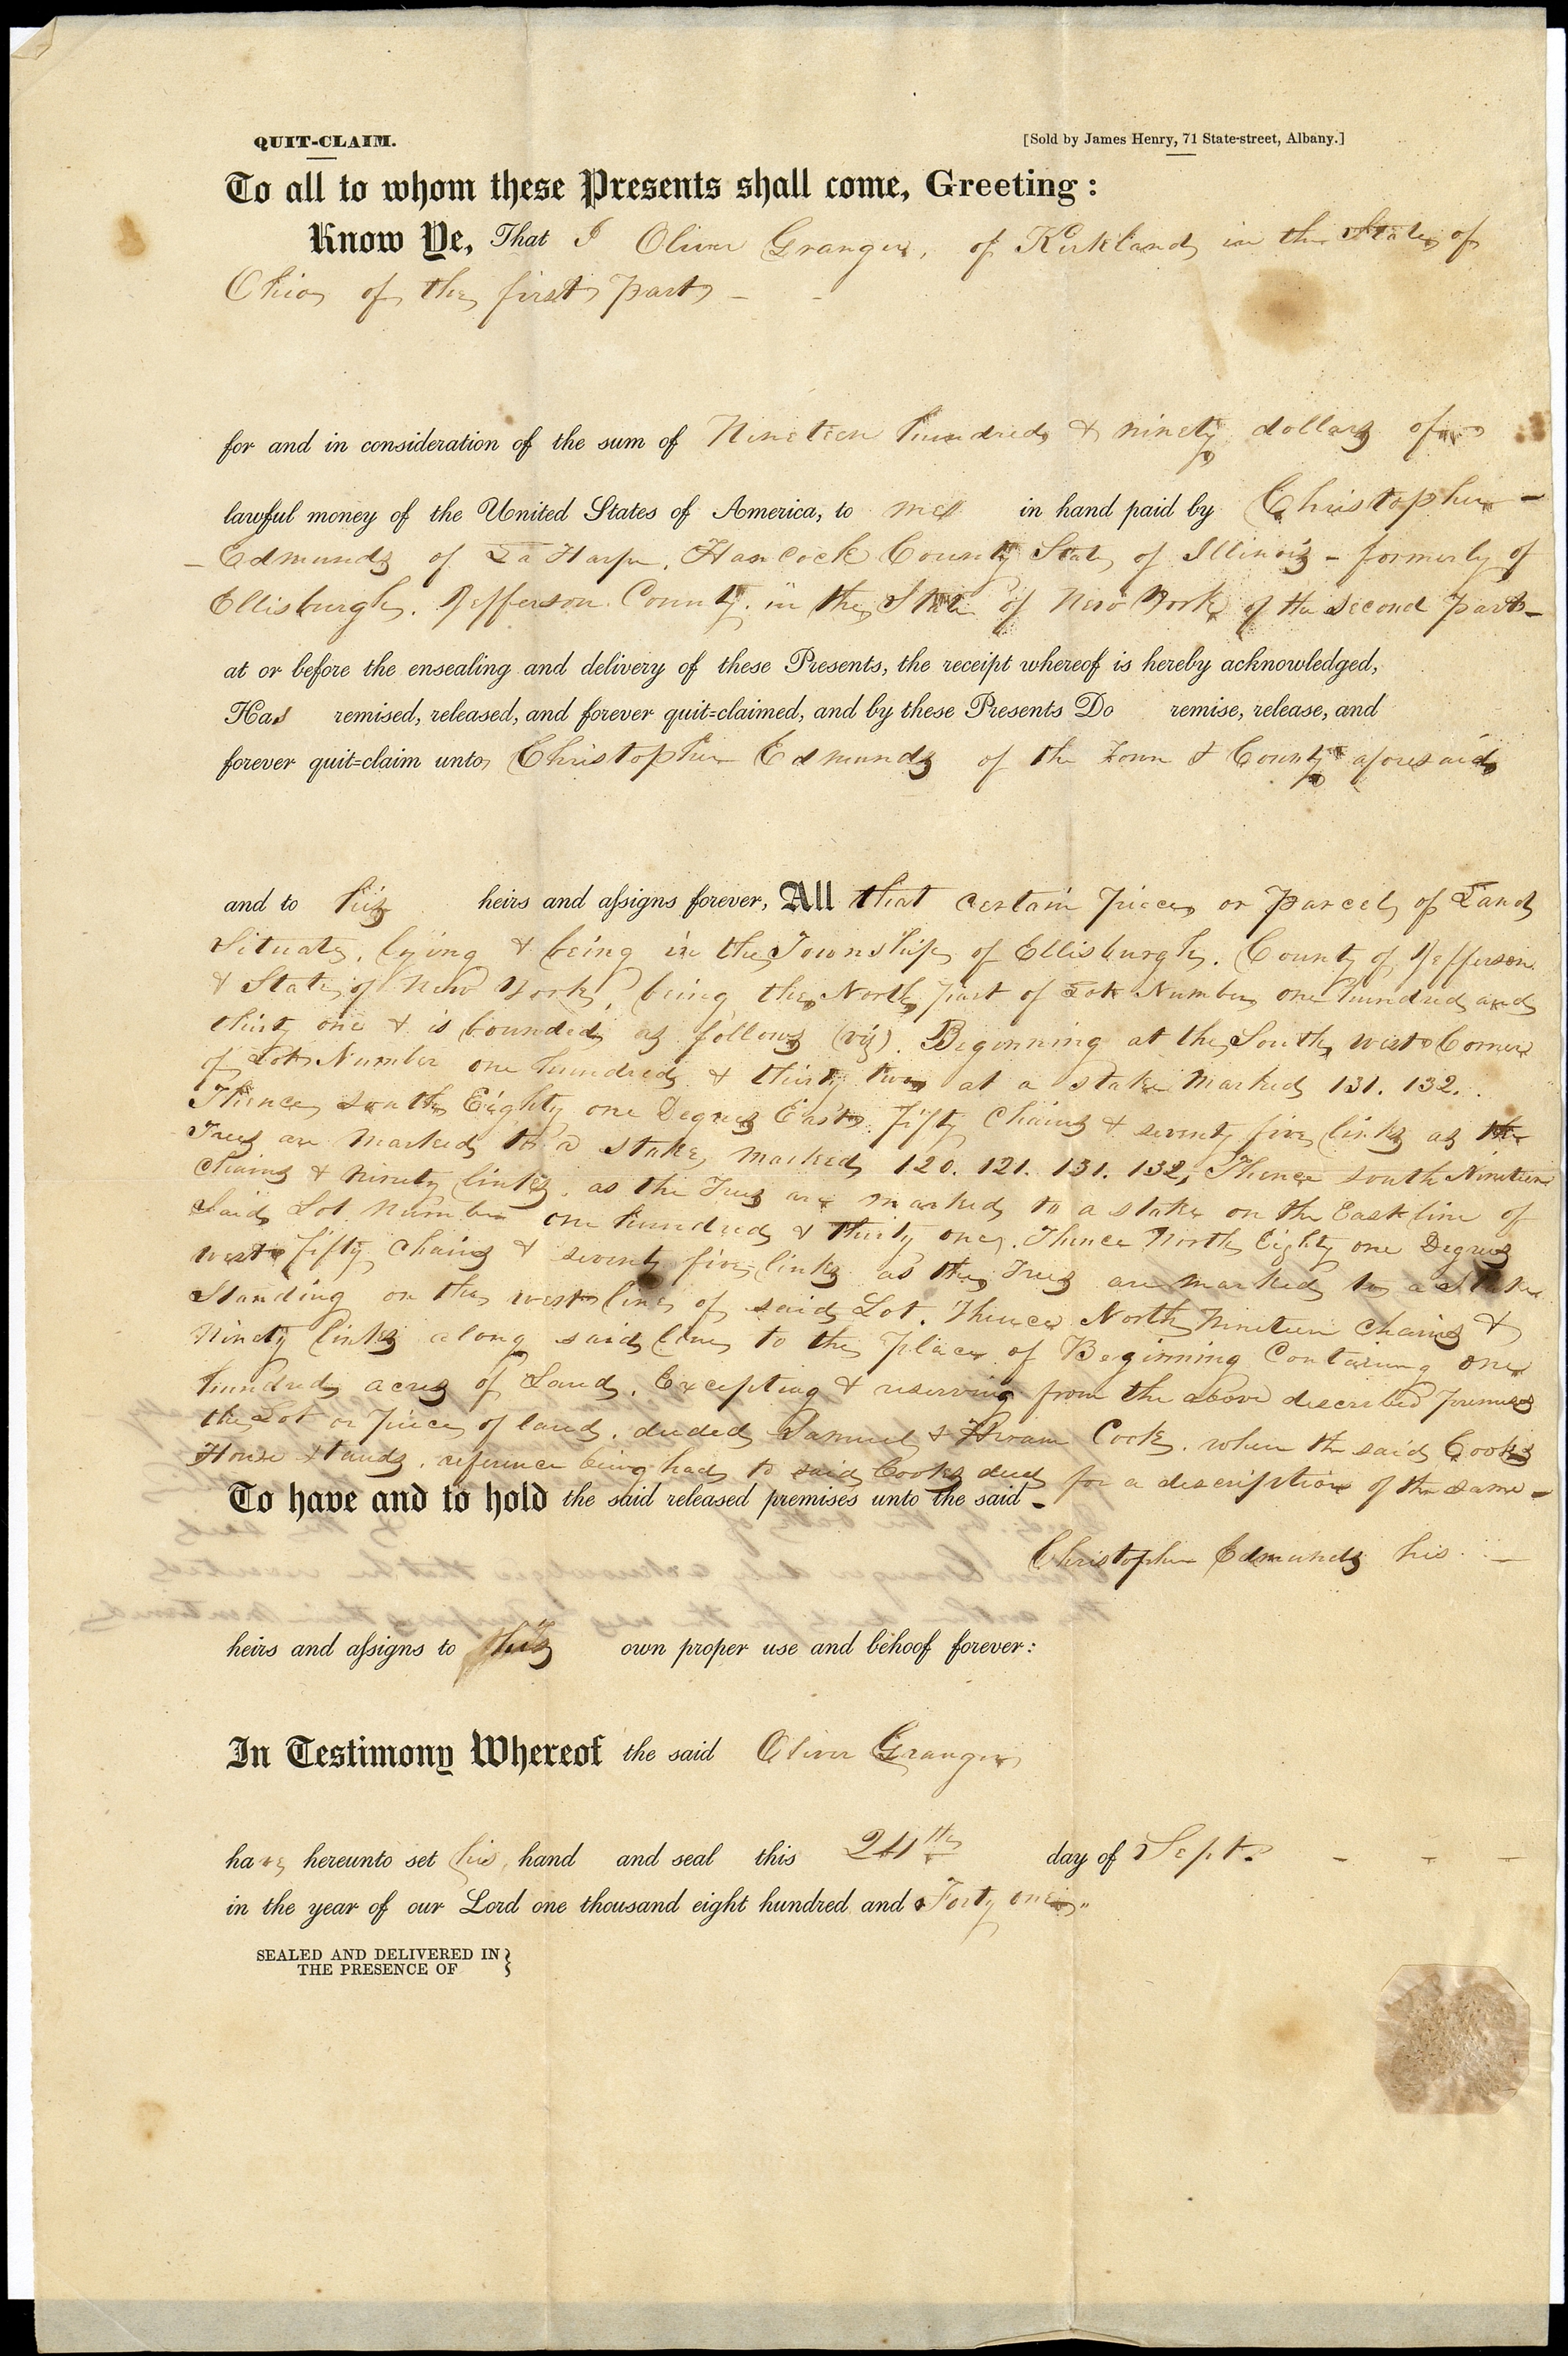 QUIT-CLAIM.
[Sold by James Henry, 71 State-street, Albany.]
To all to whom these Presents shall come, Greeting:
Know Ye, That I Oliver Granger, of Kirkland in the State of
Ohio of the first part –
for and in consideration of the sum of Nineteen hundred & ninety dollars of
lawful money of the United States of America, to me in hand paid by Christopher –
– Edmunds of La Harpe, Hancock County State of Illinois – formerly of
Ellisburgh, Jefferson County in the State of New York of the second part –
at or before the ensealing and delivery of these Presents, the receipt whereof is hereby acknowledged,
Has remised, released, and forever quit-claimed, and by these Presents Do remise, release, and
forever quit-claim unto Christopher Edmunds of the Town & County aforesaid
and to his heirs and assigns forever, All that certain piece or parcel of Land
Situate, lying & being in the Township of Ellisburgh, County of Jefferson
& State of New York, being the North part of Lot Number one hundred and
thirty one & is bounded as follows (viz). Beginning at the South west Corner
of Lot Number one hundred & thirty two at a stake marked 131. 132.
Thence south Eighty one Degrees East fifty Chains & seventy five links as the
Trees are marked to a stake marked 120. 121. 131. 132, Thence south Nineteen
Chains & Ninety links, as the Trees are marked to a stake on the East line of
Said Lot Number one hundred & thirty one, Thence North Eighty one Degrees
west fifty chains & seventy five links as the Trees are marked to a Stake
Standing on the west line of said Lot, Thence North Nineteen Chains &
Ninety links along said line to the place of Beginning Containing one
hundred acres of Land, Excepting & reserving from the above described premises
the Lot or piece of land, deeded Samuel & Hiram Cook, where the said Cooks
House stands, reference being had to said Cooks deed for a description of the same –
To have and to hold the said released premises unto the said –
Christopher Edmunds his –
heirs and assigns to his own proper use and behoof forever:
In Testimony Whereof the said Oliver Granger
have hereunto set his hand and seal this 24th day of Sept. – – –
in the year of our Lord one thousand eight hundred and Forty one
SEALED AND DELIVERED IN
THE PRESENCE OF